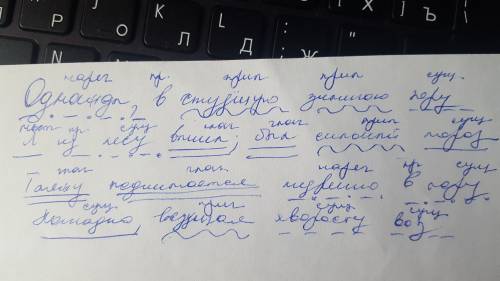 нареч пр. прил прил сущ.
Однажды, в студёную зимнюю пору
мест пр. сущ глаг глаг прил сущ
Я из лесу вышел; был сильный мороз
глаг глаг нареч пр сущ
Гляжу поднимается медленно в гору.
сущ прил сущ сущ
Лошадка везущая хворосту воз